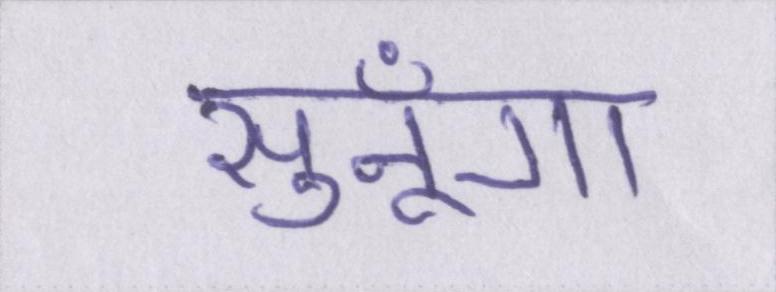 सुनूँगा